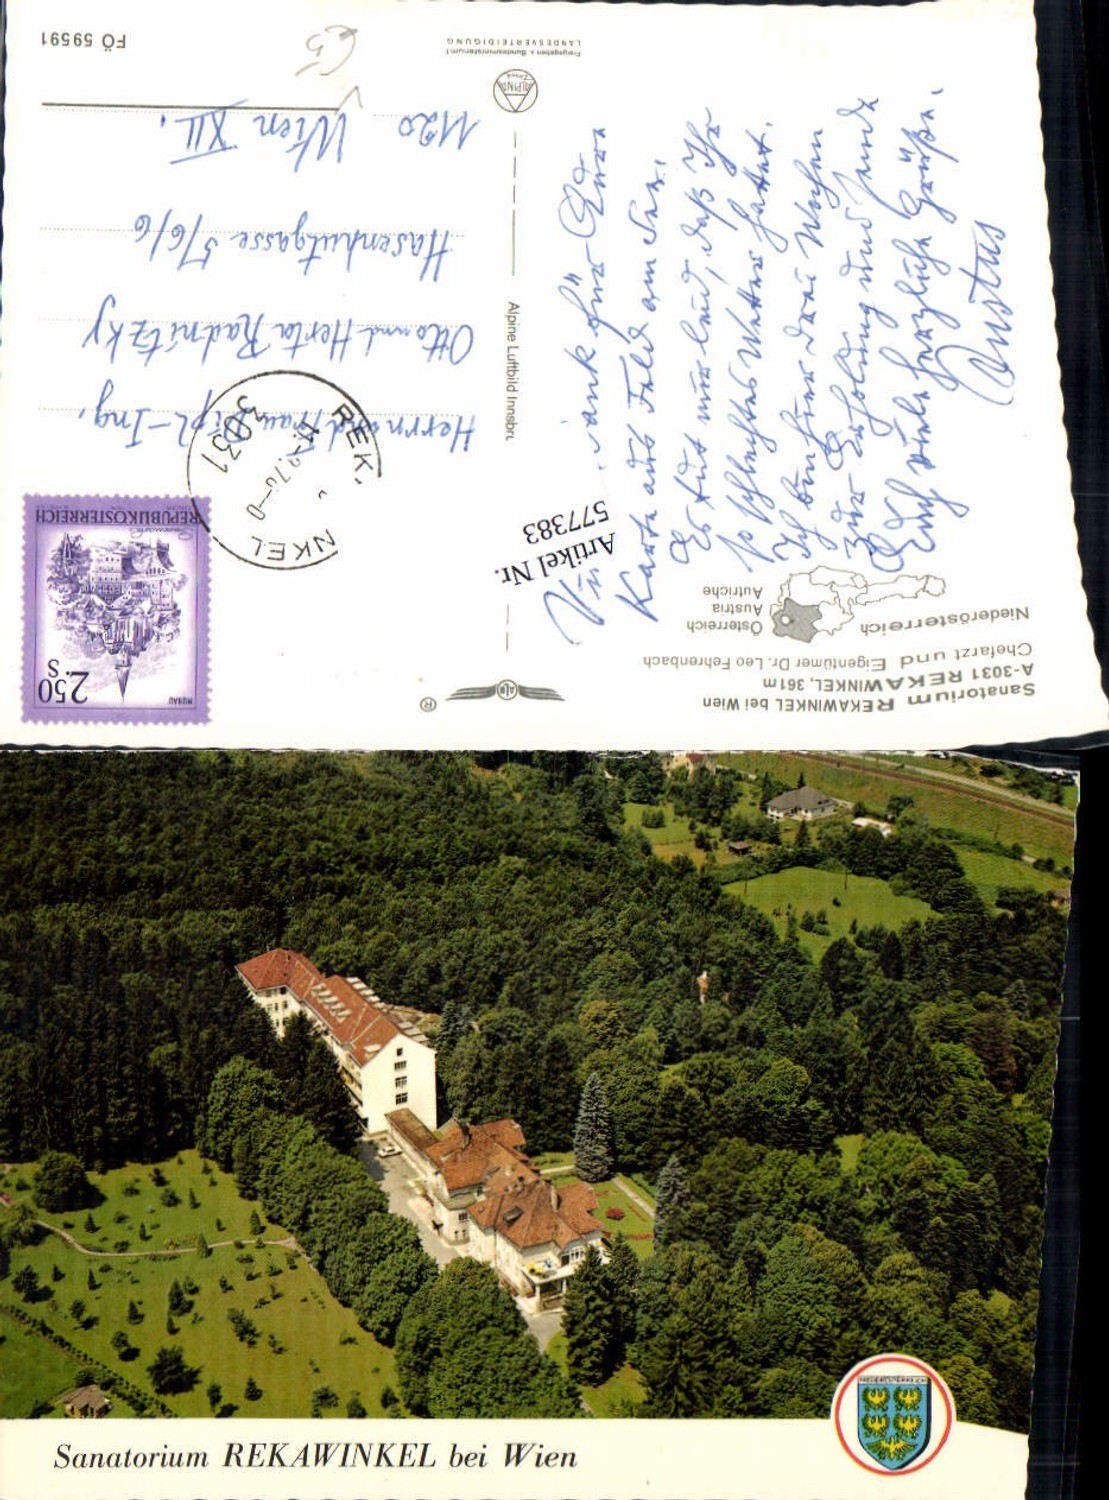 Sanatorium REKAWINKEL bei Wien
A-3031 REKAWINKEL, 361m
Chefarzt und Eigentümer Dr. Leo Fehrenbach
Niederösterreich
Österreich
Austria
Autriche
Artikel Nr.
577383
Vielen Dank für Eure
Karte aus Feld am See.
Es tut mir leid, daß Ihr
so schlechtes Wetter hattet.
Ich bin hier drei Wochen
zur Erholung und sende
Euch viele herzliche Grüße.
Alpine Luftbild Innsbru
ALPINE
Freigegeben v. Bundesministerium f.
LANDESVERTEIDIGUNG
2.50
S
MURAU
REPUBLIK ÖSTERREICH
3031
REK
NKEL
Herrn und Frau Dipl-Ing.
Otto und Herta Radnitzky
Hasenhutgasse 5/6/6
1120 Wien XII.
FÖ 59591
Sanatorium REKAWINKEL bei Wien